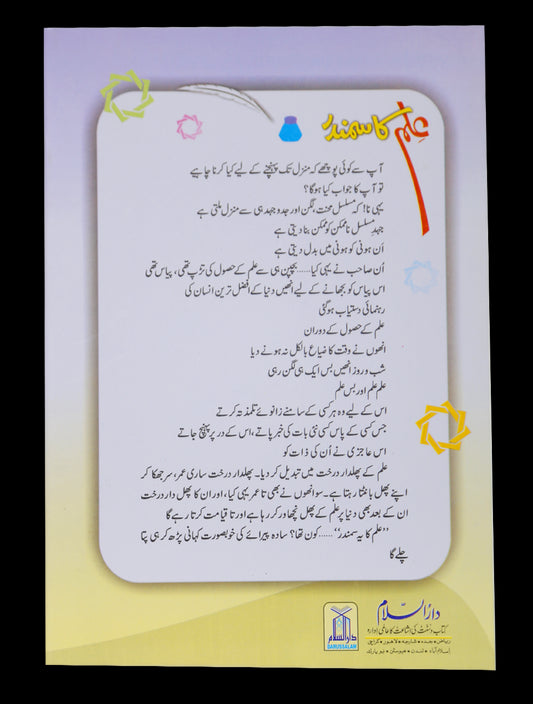 علم کا سمندر
آپ سے کوئی پوچھے کہ منزل تک پہنچنے کے لیے کیا کرنا چاہیے
تو آپ کا جواب کیا ہوگا؟
یہی نا! کہ مسلسل محنت، لگن اور جدوجہد ہی سے منزل ملتی ہے
جہدِ مسلسل ناممکن کو ممکن بنا دیتی ہے
اَن ہونی کو ہونی میں بدل دیتی ہے
اُن صاحب نے یہی کیا ...... بچپن ہی سے علم کے حصول کی تڑپ تھی، پیاس تھی
اس پیاس کو بجھانے کے لیے انھیں دنیا کے افضل ترین انسان کی
رہنمائی دستیاب ہوگئی
علم کے حصول کے دوران
انھوں نے وقت کا ضیاع بالکل نہ ہونے دیا
شب و روز انھیں بس ایک ہی لگن رہی
علم علم اور بس علم
اس کے لیے وہ ہر کسی کے سامنے زانوئے تلمذ تہ کرتے
جس کسی کے پاس کسی نئی بات کی خبر پاتے، اس کے در پر پہنچ جاتے
اس عاجزی نے اُن کی ذات کو
علم کے پھلدار درخت میں تبدیل کر دیا۔ پھلدار درخت ساری عمر، سر جھکا کر
اپنے پھل بانٹتا رہتا ہے۔ سو انھوں نے بھی تا عمر یہی کیا، اور ان کا پھل دار درخت
ان کے بعد بھی دنیا پر علم کے پھل نچھاور کر رہا ہے اور تا قیامت کرتا رہے گا
”علم کا یہ سمندر“ ...... کون تھا؟ سادہ پیرائے کی خوبصورت کہانی پڑھ کر ہی پتا
چلے گا
دارالسلام
DARUSSALAM
دارُالسّلام
کتاب و سنت کی اشاعت کا عالمی ادارہ
ریاض • جدہ • شارجہ • لاہور • کراچی
اسلام آباد • لندن • ہیوسٹن • نیویارک